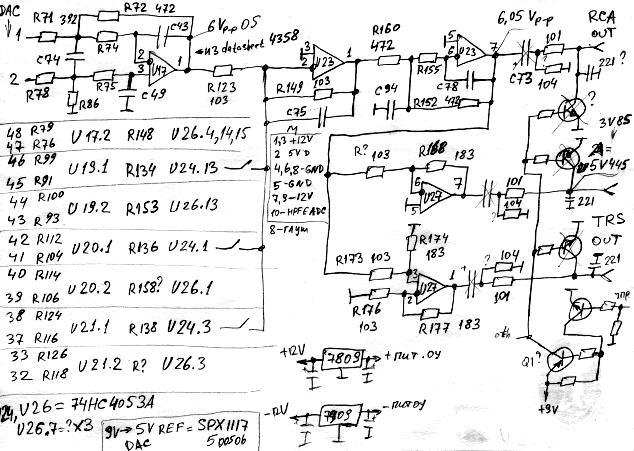 DAC
R71 392
R72 472
C43
6Vp-p 05
из datasheet 4358
1
R74
C74
2
3
U17
1
2
R78
R75
R86
C49
R123
103
3
2
U23
1
R149
103
C75
R160
472
C94
R155
5
6
U23
7
C78
R152 472
6,05 Vp-p
C73
101
104
RCA
OUT
221
?
3V85
5V445
48 R79
47 R76
U17.2 R148 U26.4,14,15
46 R99
45 R91
U19.1 R134 U24.13
44 R100
43 R93
U19.2 R153 U26.13
42 R112
41 R104
U20.1 R136 U24.1
40 R114
39 R106
U20.2 R158? U26.1
38 R124
37 R116
U21.1 R138 U24.3
33 R126
32 R118
U21.2 R? U26.3
M
1,3 +12V
2 5VD
4,6,8-GND
5-GND
7,9-12V
10-HPFEADC
8-Глуш
R?
103
R168
183
6
5
U27
7
101
104
221
R174
183
R173 103
3
2
U27
1
?
104
101
221
TRS
OUT
R176
103
R177 183
Q1?
+9V
+12V
7809
+ пит. ОУ
-12V
7909
- пит ОУ
U24, U26 = 74HC4053A
U26.7=?x3
9V→5V REF= SPX1117
DAC 50050G